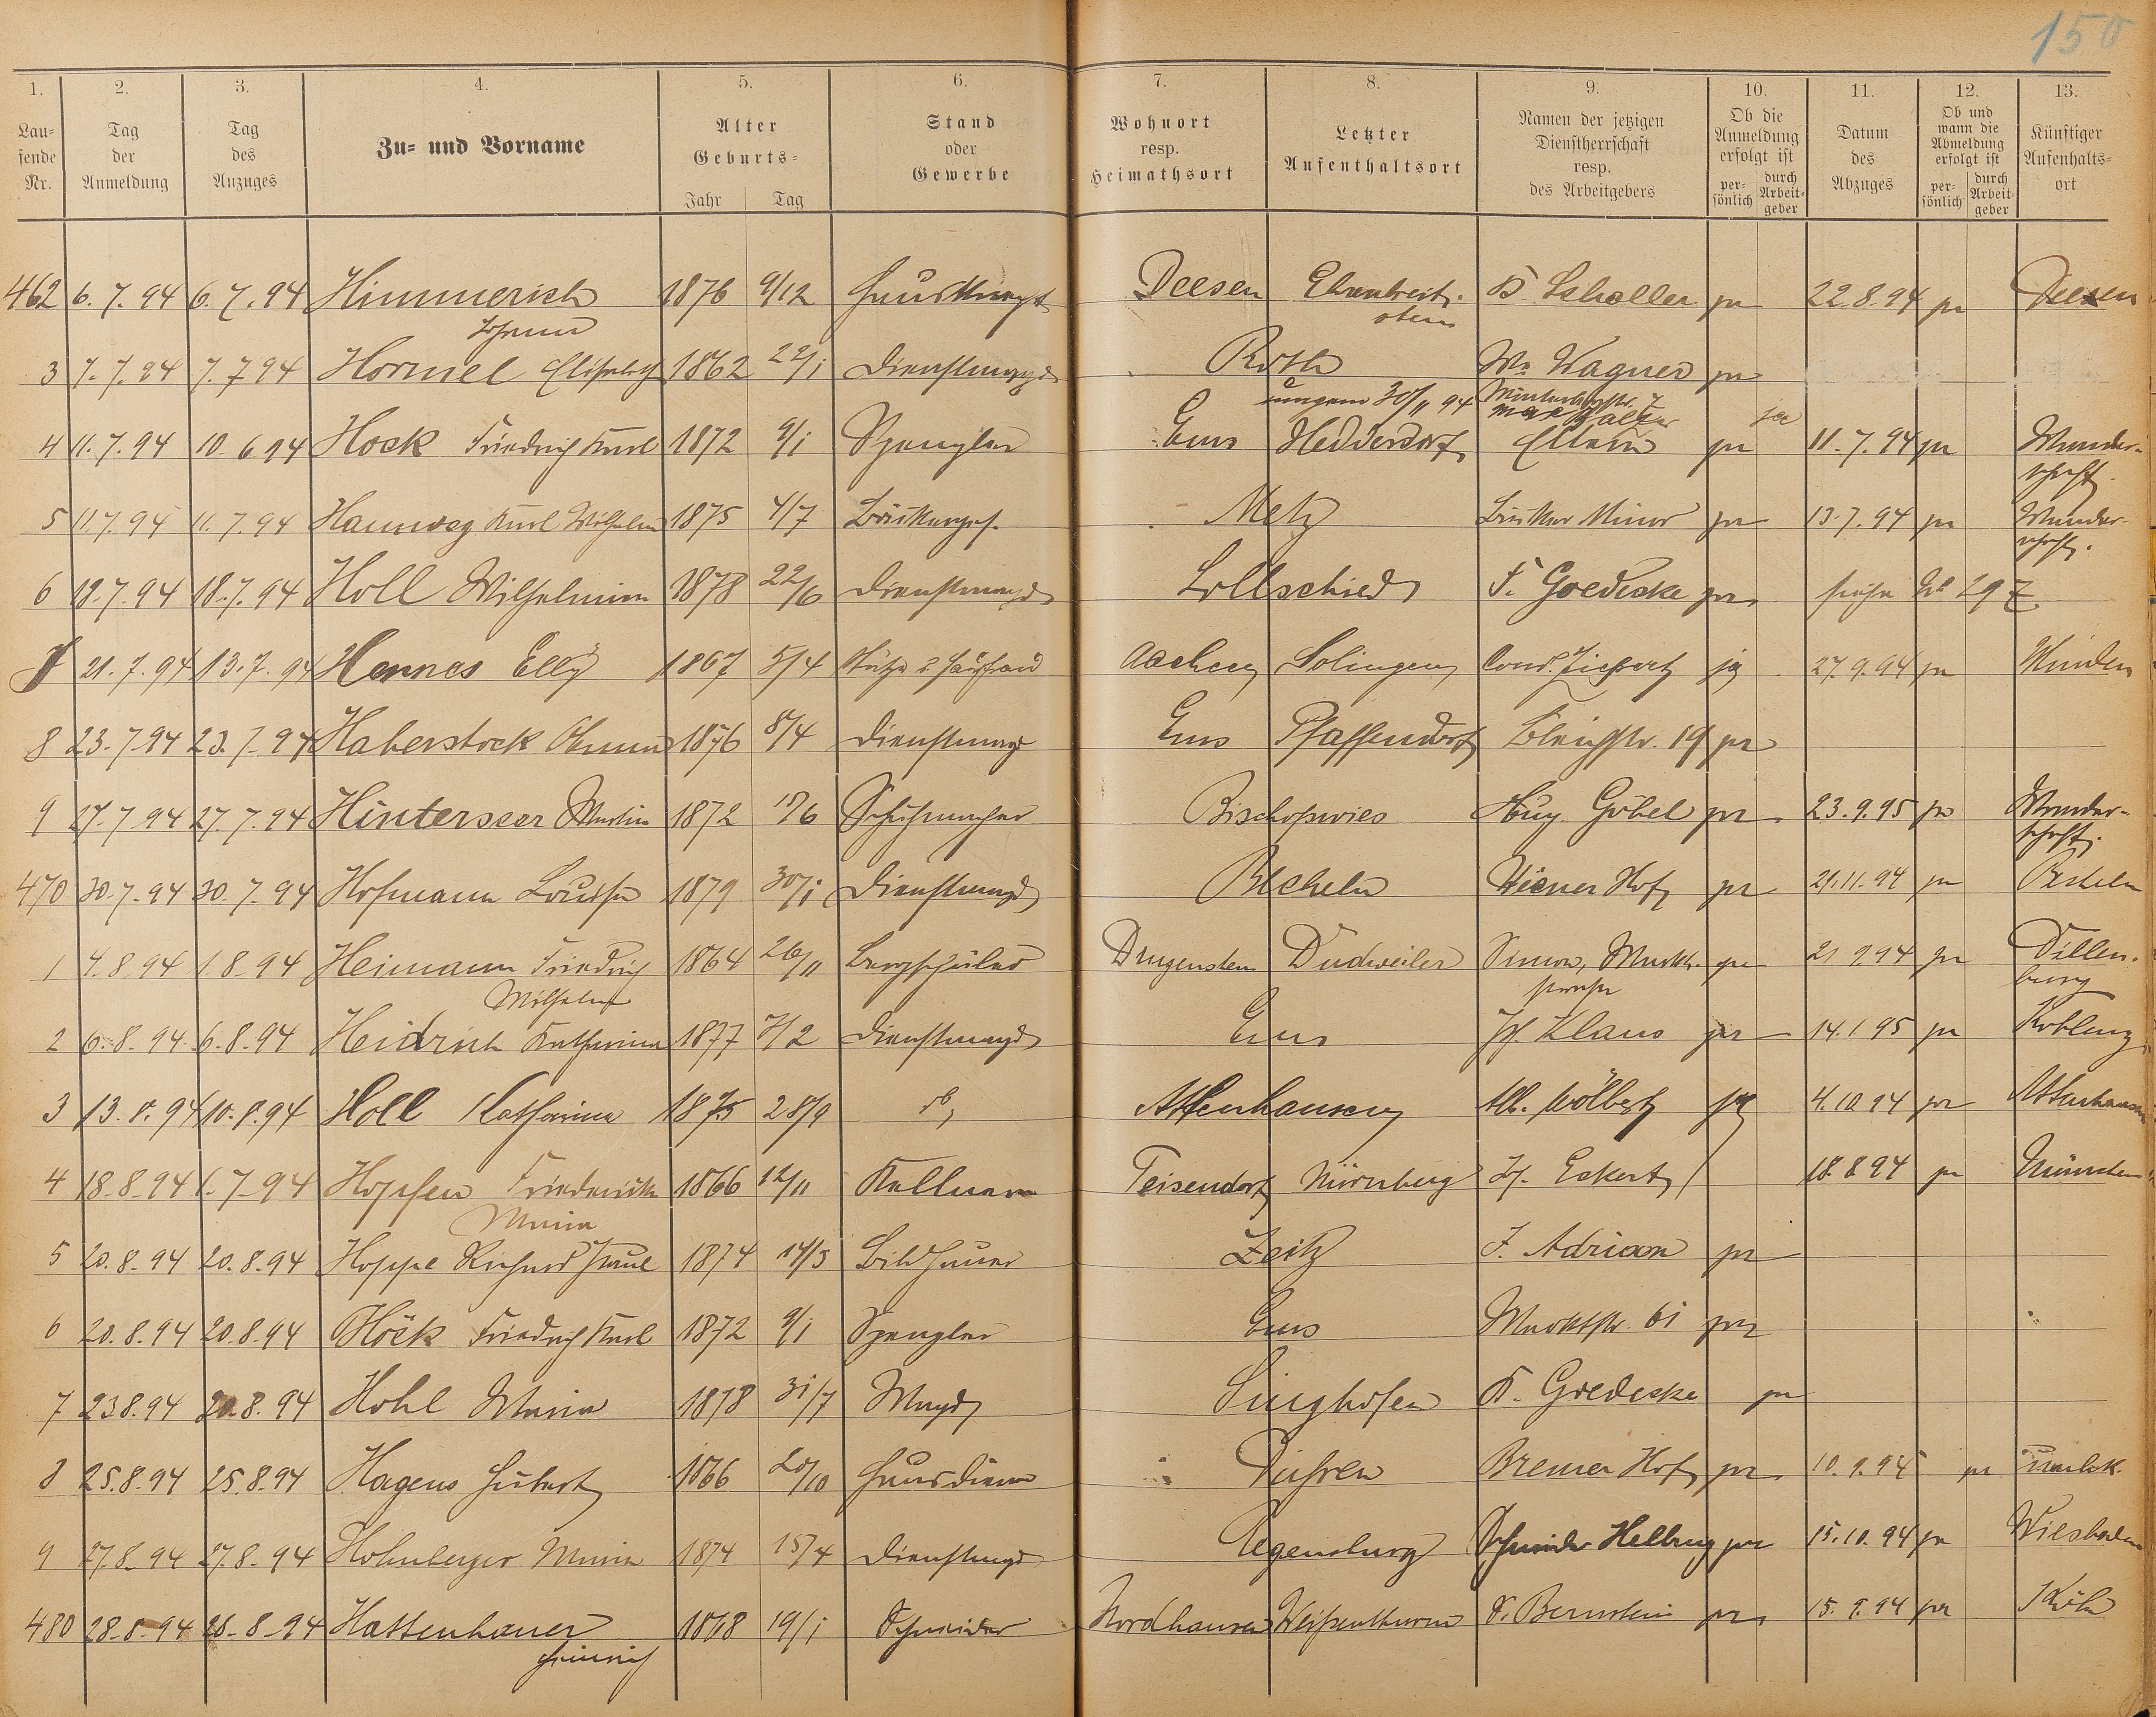 150
1. 2. 3. 4. 5. 6. 7. 8. 9. 10. 11. 12. 13.
Lau=fende Nr. Tag der Anmeldung Tag des Anzuges Zu= und Vorname Alter Geburts= Jahr Tag Stand oder Gewerbe Wohnort resp. Heimathsort Letzter Aufenthaltsort Namen der jetzigen Dienstherrschaft resp. des Arbeitgebers Ob die Anmeldung erfolgt ist per=sönlich durch Arbeit=geber Datum des Abzuges Ob und wann die Abmeldung erfolgt ist per=sönlich durch Arbeit=geber Künftiger Aufenhalts=ort
462 6.7.94 6.7.94 Himmerich 1876 9/12 Hausknecht Deesen Ehrenbreit. B. Scholler pr 22.8.94 pr Deesen
Johann stein
3 7.7.94 7.7.94 Hormel Elisabeth 1862 22/1 Dienstmagd Roth W. Wagner pr
30/11 94
4 11.7.94 10.6.94 Hock Friedrich Karl 1872 9/1 Spengler Ems Heddersdorf Eltern pr ja 11.7.94 pr Wander-
schaft.
5 11.7.94 11.7.94 Hannweg Karl Wilhelm 1875 4/7 Bäckerges. Metz Bäcker Minor pr 13.7.94 pr Wander-
schaft.
6 18.7.94 18.7.94 Holl Wilhelmine 1878 22/6 Dienstmagd Lollschied F. Goedecke pr siehe 297
7 21.7.94 13.7.94 Hennes Elly 1867 5/4 Stütze d Hausfrau Aachen Solingen ja 27.9.94 pr Minden
8 23.7.94 23.7.94 Haberstock 1876 8/4 Dienstmagd Ems Pfaffendorf Bleichstr. 19 pr
9 27.7.94 27.7.94 Hinterseer Martin 1872 18/6 Schuhmacher Bischofswies Aug. Göbel pr 23.9.95 pr Wander-
schaft.
470 30.7.94 30.7.94 Hofmann Louise 1879 30/1 Dienstmagd Becheln Wiener Hof pr 21.11.94 pr Becheln
1 4.8.94 1.8.94 Heimann Friedrich 1864 26/11 Bergschüler Dudweiler Simon, Markt- pr 21.9.94 pr Dillen-
Wilhelm strasse burg
2 6.8.94 6.8.94 Heidrich Katharina 1877 7/2 Dienstmagd Ems Jos. Klaus pr 14.1.95 pr Koblenz
3 13.8.94 10.8.94 Holl Katharina 1875 28/9 do. Attenhausen pr 4.10.94 pr Attenhausen
4 18.8.94 1.7.94 Hopfen Friedericke 1866 12/11 Kellnerin Teisendorf Nürnberg Jos. Eckert 18.8.94 pr München
Maria
5 20.8.94 20.8.94 Hoppe Richard Paul 1874 14/3 Bildhauer Zeitz J. Adrian pr
6 20.8.94 20.8.94 Höck Friedrich Karl 1872 9/1 Spengler Ems Marktstr. 61 pr
7 23.8.94 20.8.94 Hohl Maria 1878 31/7 Magd Singhofen F. Goedecke pr
8 25.8.94 25.8.94 Hagens Hubert 1866 20/10 Hausdiener Bremer Hof pr 10.9.94 pr unbek.
9 27.8.94 27.8.94 Hohnberger Maria 1874 15/4 Dienstmagd Regensburg Schneider pr 15.10.94 pr Wiesbaden
480 28.8.94 28.8.94 Hattenhauer 1868 19/1 Schneider Nordhausen Weißenthurm S. Bernstein pr 15.9.94 pr Köln
Heinrich